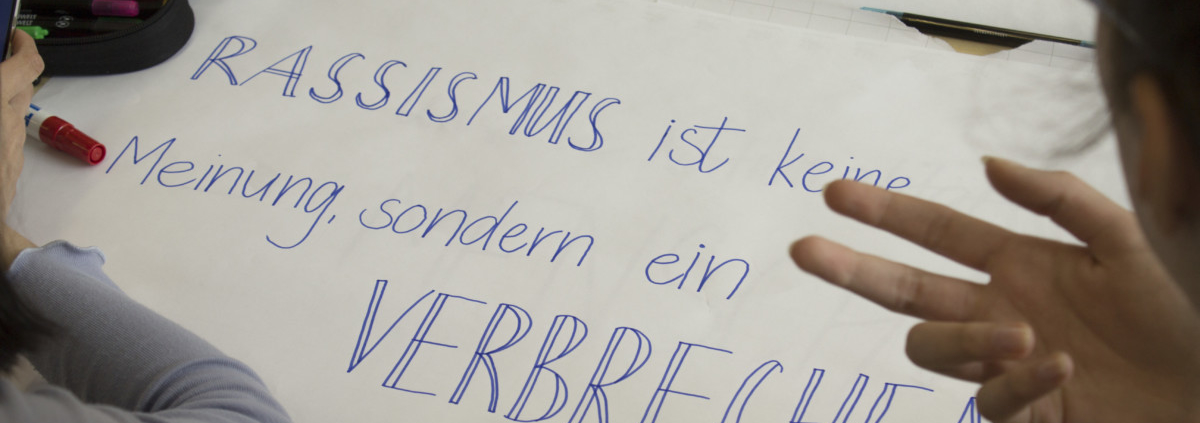 RASSISMUS ist keine
Meinung, sondern ein
VERBRECHEN